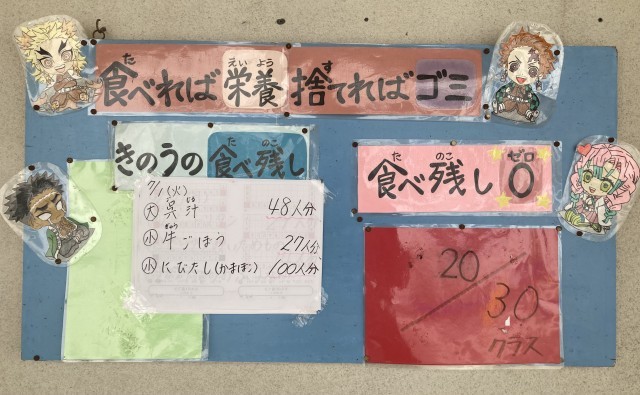 食べれば栄養捨てればゴミ
た えい よう す
きのうの食べ残し
た のこ
7/1(火)
大 呉汁 48人分
ご じる
小 牛ごぼう 27人分
ぎゅう
小 にびたし(かまぼこ) 100人分
食べ残し0
た のこ ゼロ
20/30
クラス